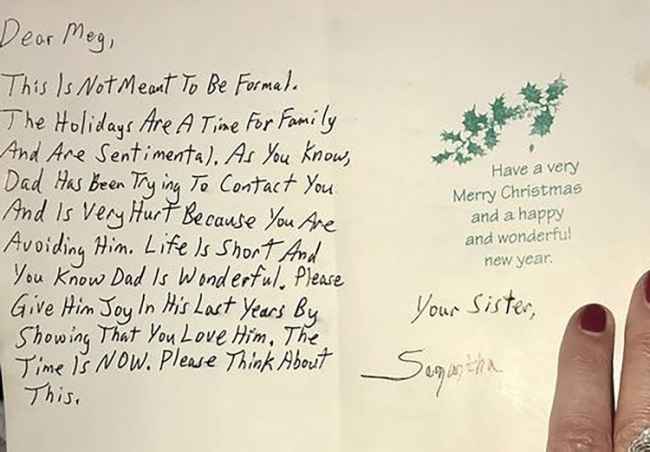 Dear Meg,
This Is Not Meant To Be Formal.
The Holidays Are A Time For Family
And Are Sentimental. As You Know,
Dad Has Been Trying To Contact You
And Is Very Hurt Because You Are
Avoiding Him. Life Is Short And
You Know Dad Is Wonderful. Please
Give Him Joy In His Last Years By
Showing That You Love Him. The
Time Is NOW. Please Think About
This.
Have a very
Merry Christmas
and a happy
and wonderful
new year.
Your Sister,
Samantha